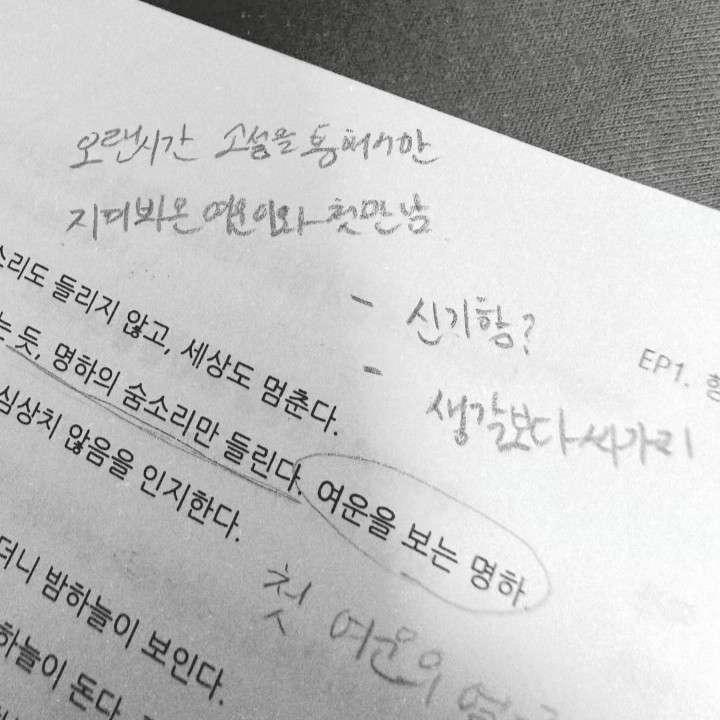 오랜시간 소설을 통해서만
지켜봐온 여운이와 첫만남
- 신기함?
EP1.
- 생각보다 싸가지
소리도 들리지 않고, 세상도 멈춘다.
는 듯, 명하의 숨소리만 들린다. 여운을 보는 명하.
심상치 않음을 인지한다.
첫 여운의
더니 밤하늘이 보인다.
하늘이 돈다.